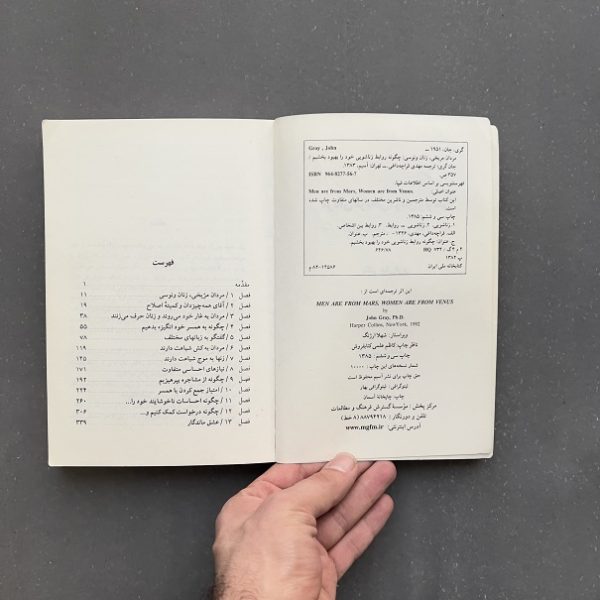 گری، جان، ۱۹۵۱ ــ
Gray , John
مردان مریخی، زنان ونوسی: چگونه روابط زناشویی خود را بهبود بخشیم /
جان گری؛ ترجمه مهدی قراچه‌داغی ــ تهران: آسیم، ۱۳۸۳.
۳۵۷ ص.
ISBN 964-8277-56-7
فهرستنویسی بر اساس اطلاعات فیپا.
عنوان اصلی: Men are from Mars, Women are from Venus.
این کتاب توسط مترجمین و ناشرین مختلف، در سالهای متفاوت چاپ شده
است.
چاپ سی و ششم: ۱۳۸۵.
۱. زناشویی. ۲. زناشویی ــ روابط. ۳. روابط بین اشخاص.
الف. قراچه‌داغی، مهدی، ۱۳۲۶ - . مترجم. ب. عنوان.
ج. عنوان: چگونه روابط زناشویی خود را بهبود بخشیم.
۲ م ۴ گ / ۷۳۴ HQ ۶۴۶/۷۸
۱۳۸۳
کتابخانه ملی ایران ۱۴۵۸۶-۸۳ م
این اثر ترجمه‌ای است از:
MEN ARE FROM MARS, WOMEN ARE FROM VENUS
by
John Gray, Ph.D.
Harper Collins, NewYork, 1992
ویراستار: شهلا ارژنگ
ناظر چاپ: کاظم علمی کتابفروش
چاپ سی و ششم: ۱۳۸۵
شمار نسخه‌های این چاپ: ۱۰۰۰۰
حق چاپ برای نشر آسیم محفوظ است
لیتوگرافی: لیتوگرافی بهار
چاپ: چاپخانه آسمان
مرکز پخش: مؤسسهٔ گسترش فرهنگ و مطالعات
تلفن و دورنگار: ۸۸۷۹۴۲۱۸ (۸ خط)
آدرس اینترنتی: www.mgfm.ir
فهرست
مقدمه ۱
فصل ۱ / مردان مریخی، زنان ونوسی ۱۱
فصل ۲ / آقای همه‌چیزدان و کمیتهٔ اصلاح ۱۹
فصل ۳ / مردان به غار خود می‌روند و زنان حرف می‌زنند ۳۸
فصل ۴ / چگونه به همسر خود انگیزه بدهیم ۵۵
فصل ۵ / گفتگو به زبانهای مختلف ۷۸
فصل ۶ / مردان به کش شباهت دارند ۱۱۹
فصل ۷ / زنها به موج شباهت دارند ۱۴۵
فصل ۸ / نیازهای احساسی متفاوت ۱۷۱
فصل ۹ / چگونه از مشاجره بپرهیزیم ۱۹۳
فصل ۱۰ / امتیاز جمع کردن با همسر ۲۲۴
فصل ۱۱ / چگونه احساسات ناخوشایند خود را... ۲۶۰
فصل ۱۲ / چگونه درخواست کمک کنیم و... ۳۰۶
فصل ۱۳ / عشق ماندگار ۳۳۹